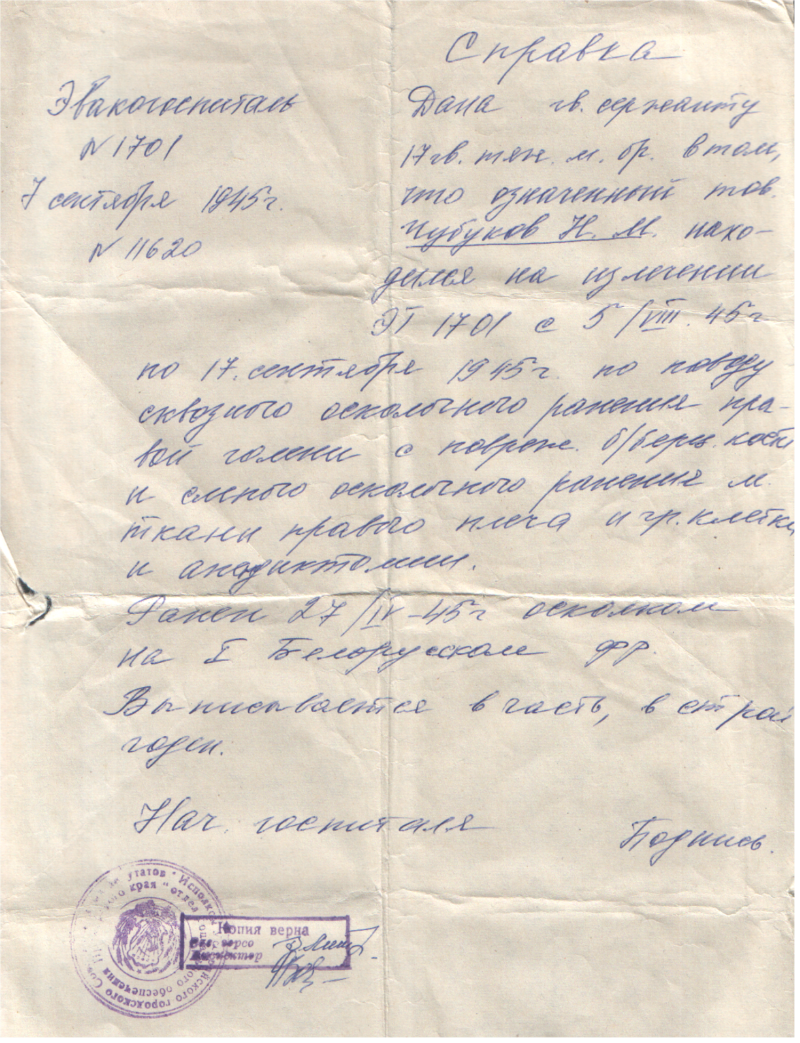 Справка
Эвакогоспиталь
N 1701
7 сентября 1945г.
N 11620
Дана гв. сержанту
17 гв. мех. м. бр. в том,
что означенный тов.
Чубуков Н. М. нахо-
дился на излечении
ЭГ 1701 с 5/VIII.45г
по 17. сентября 1945г. по поводу
сквозного осколочного ранения пра-
вой голени с повреж. б/берц. кости
и слепого осколочного ранения м.
ткани правого плеча и гр. клетки
и
Ранен 27/IV-45г осколком
на I Белорусском фр.
Выписывается в часть, в строй
годен.
Нач. госпиталя
Подпись.
Копия верна